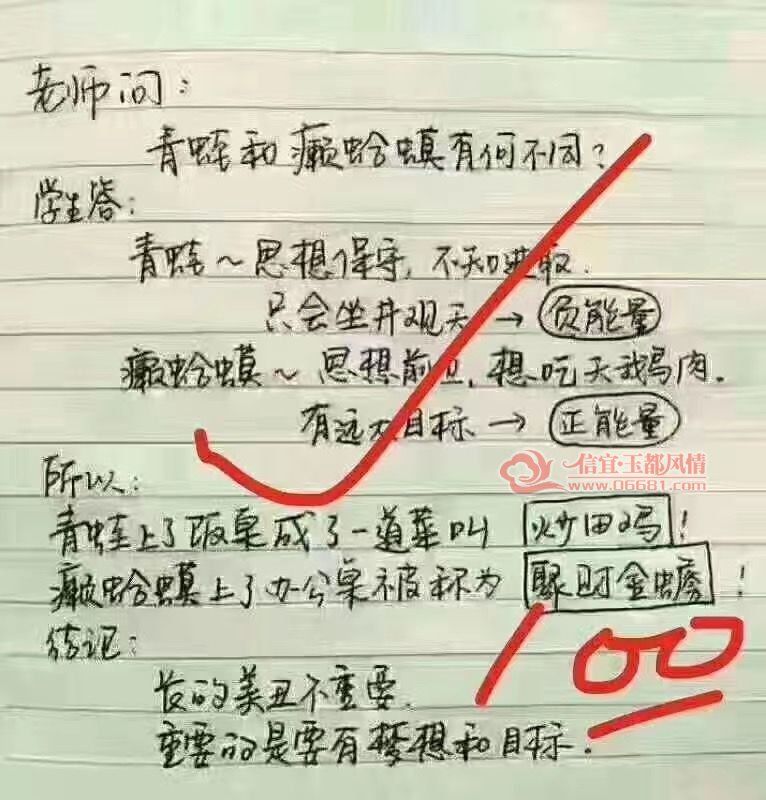 老师问:
青蛙和癞蛤蟆有何不同?
学生答:
青蛙~思想保守,不知进取.
只会坐井观天→负能量
癞蛤蟆~思想前卫,想吃天鹅肉.
有远大目标→正能量
信宜玉都风情
www.06681.com
所以:
青蛙上了饭桌成了一道菜叫 炒田鸡!
癞蛤蟆上了办公桌被称为 聚财金蟾!
结论:
长的美丑不重要.
重要的是要有梦想和目标.
100